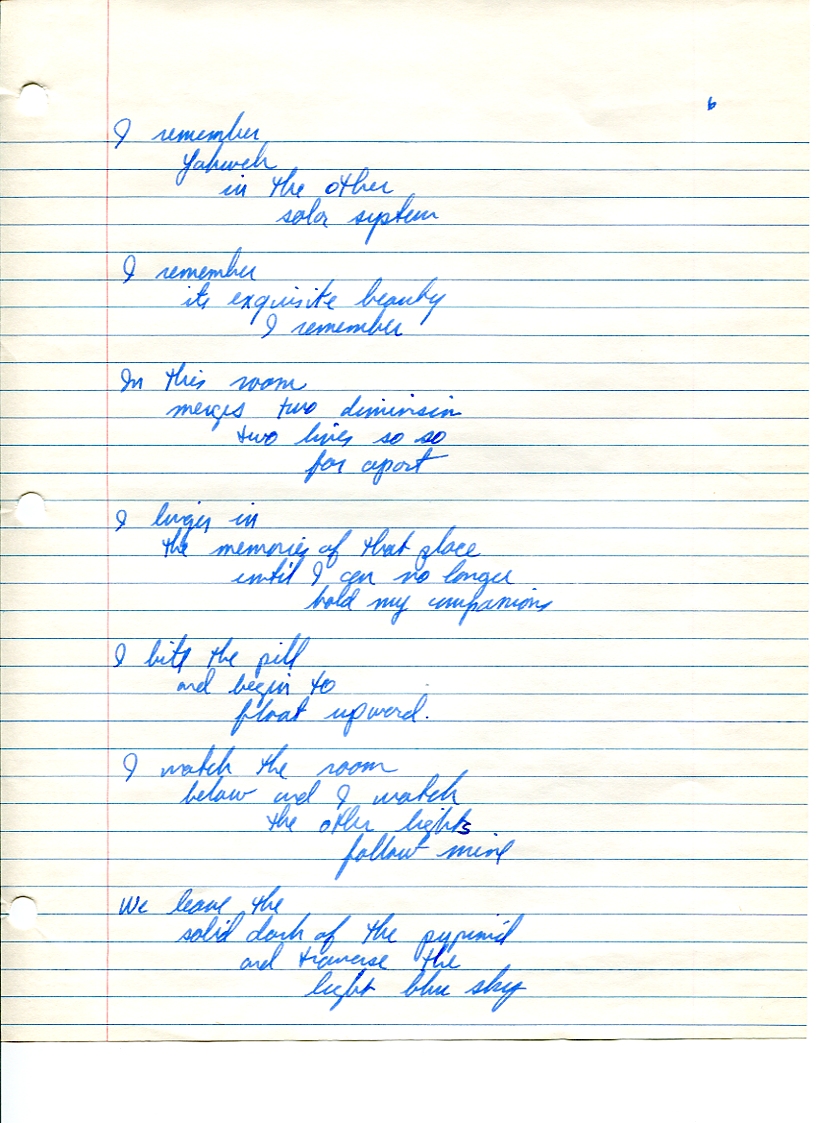 6
I remember
Yahweh
in the other
solar system
I remember
its exquisite beauty
I remember
In this room
merges two diminsin
two lives so so
far apart
I linger in
the memories of that place
until I can no longer
hold my companions
I bite the pill
and begin to
float upward.
I watch the room
below and I watch
the other lights
follow mine
We leave the
solid dark of the pyrimid
and traverse the
light blue sky